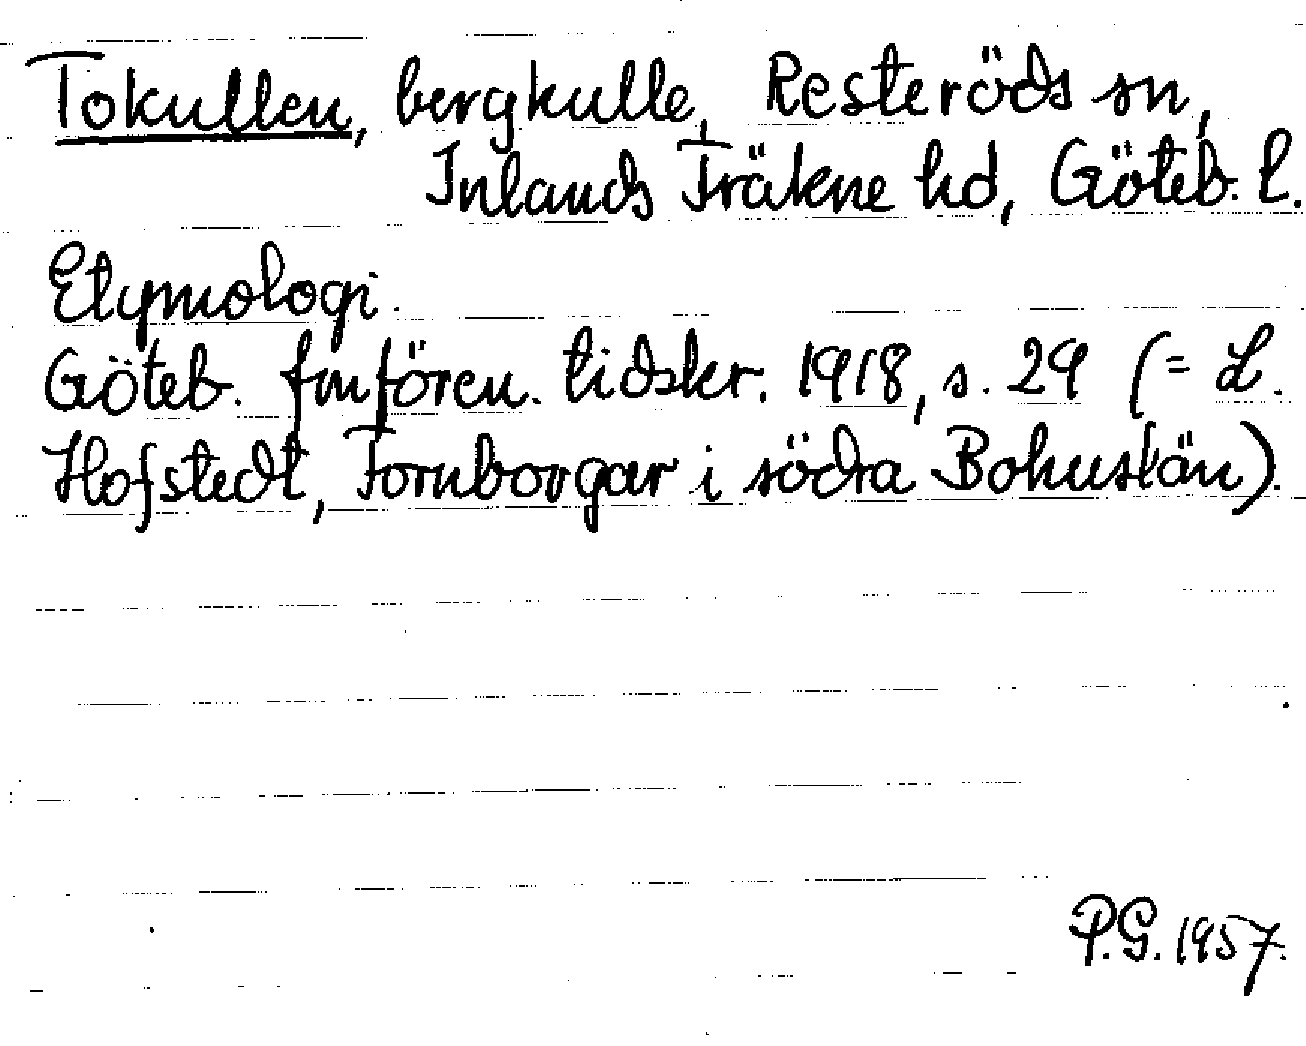 Tokullen, bergkulle, Resteröds sn,
Inlands Fräkne hd, Göteb. l.
Etymologi.
Göteb. fmfören. tidskr. 1918, s. 29 (= L.
Hofstedt, Fornborgar i södra Bohuslän).
P.G. 1957.